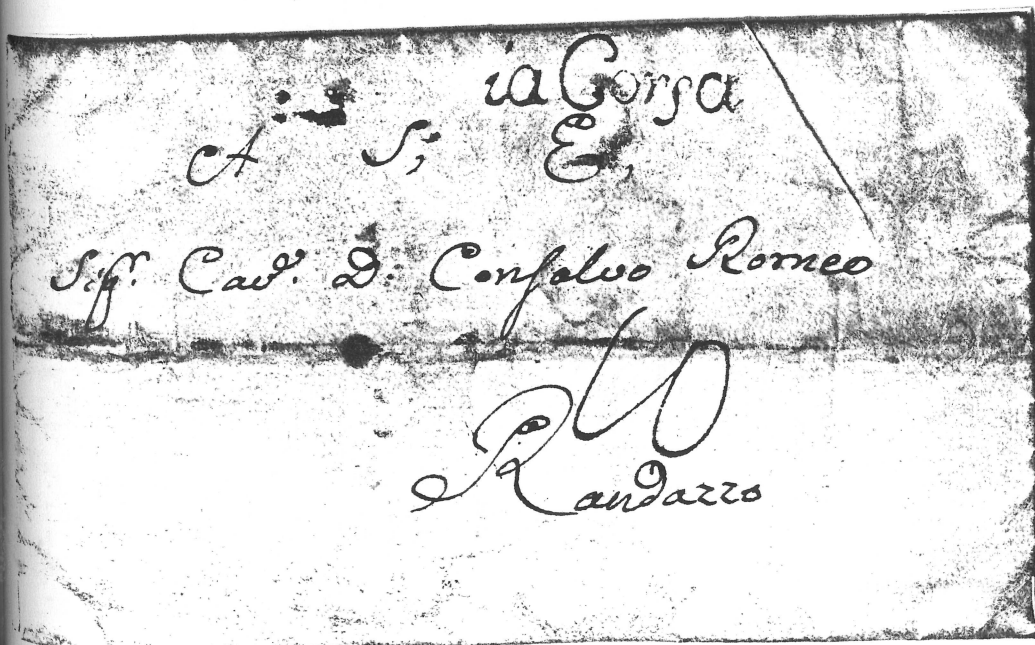 ia Corsa
A S; E,
Sigr. Cavr. D. Consalvo Romeo
Randazzo